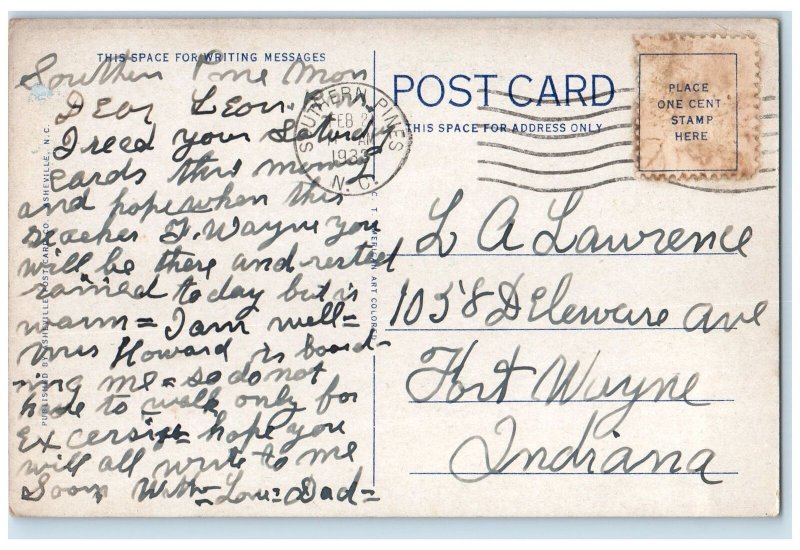 THIS SPACE FOR WRITING MESSAGES
Southern Pine Mon
Dear Leon
I recd your Saturday
cards this morning
and hope when this
reaches Ft. Wayne you
will be there and rested
rained today but is
warm = I am well =
Mrs Howard is board-
ing me = so do not
have to walk only for
Excersise = hope you
will all write to me
Soon With = Love = Dad =
PUBLISHED BY ASHEVILLE POST CARD CO., ASHEVILLE, N.C.
C. T. AMERICAN ART COLORED
SOUTHERN PINES
FEB 2
AM
193
N.C.
POST CARD
THIS SPACE FOR ADDRESS ONLY
PLACE
ONE CENT
STAMP
HERE
L A Lawrence
1058 Deleware ave
Fort Wayne
Indiana